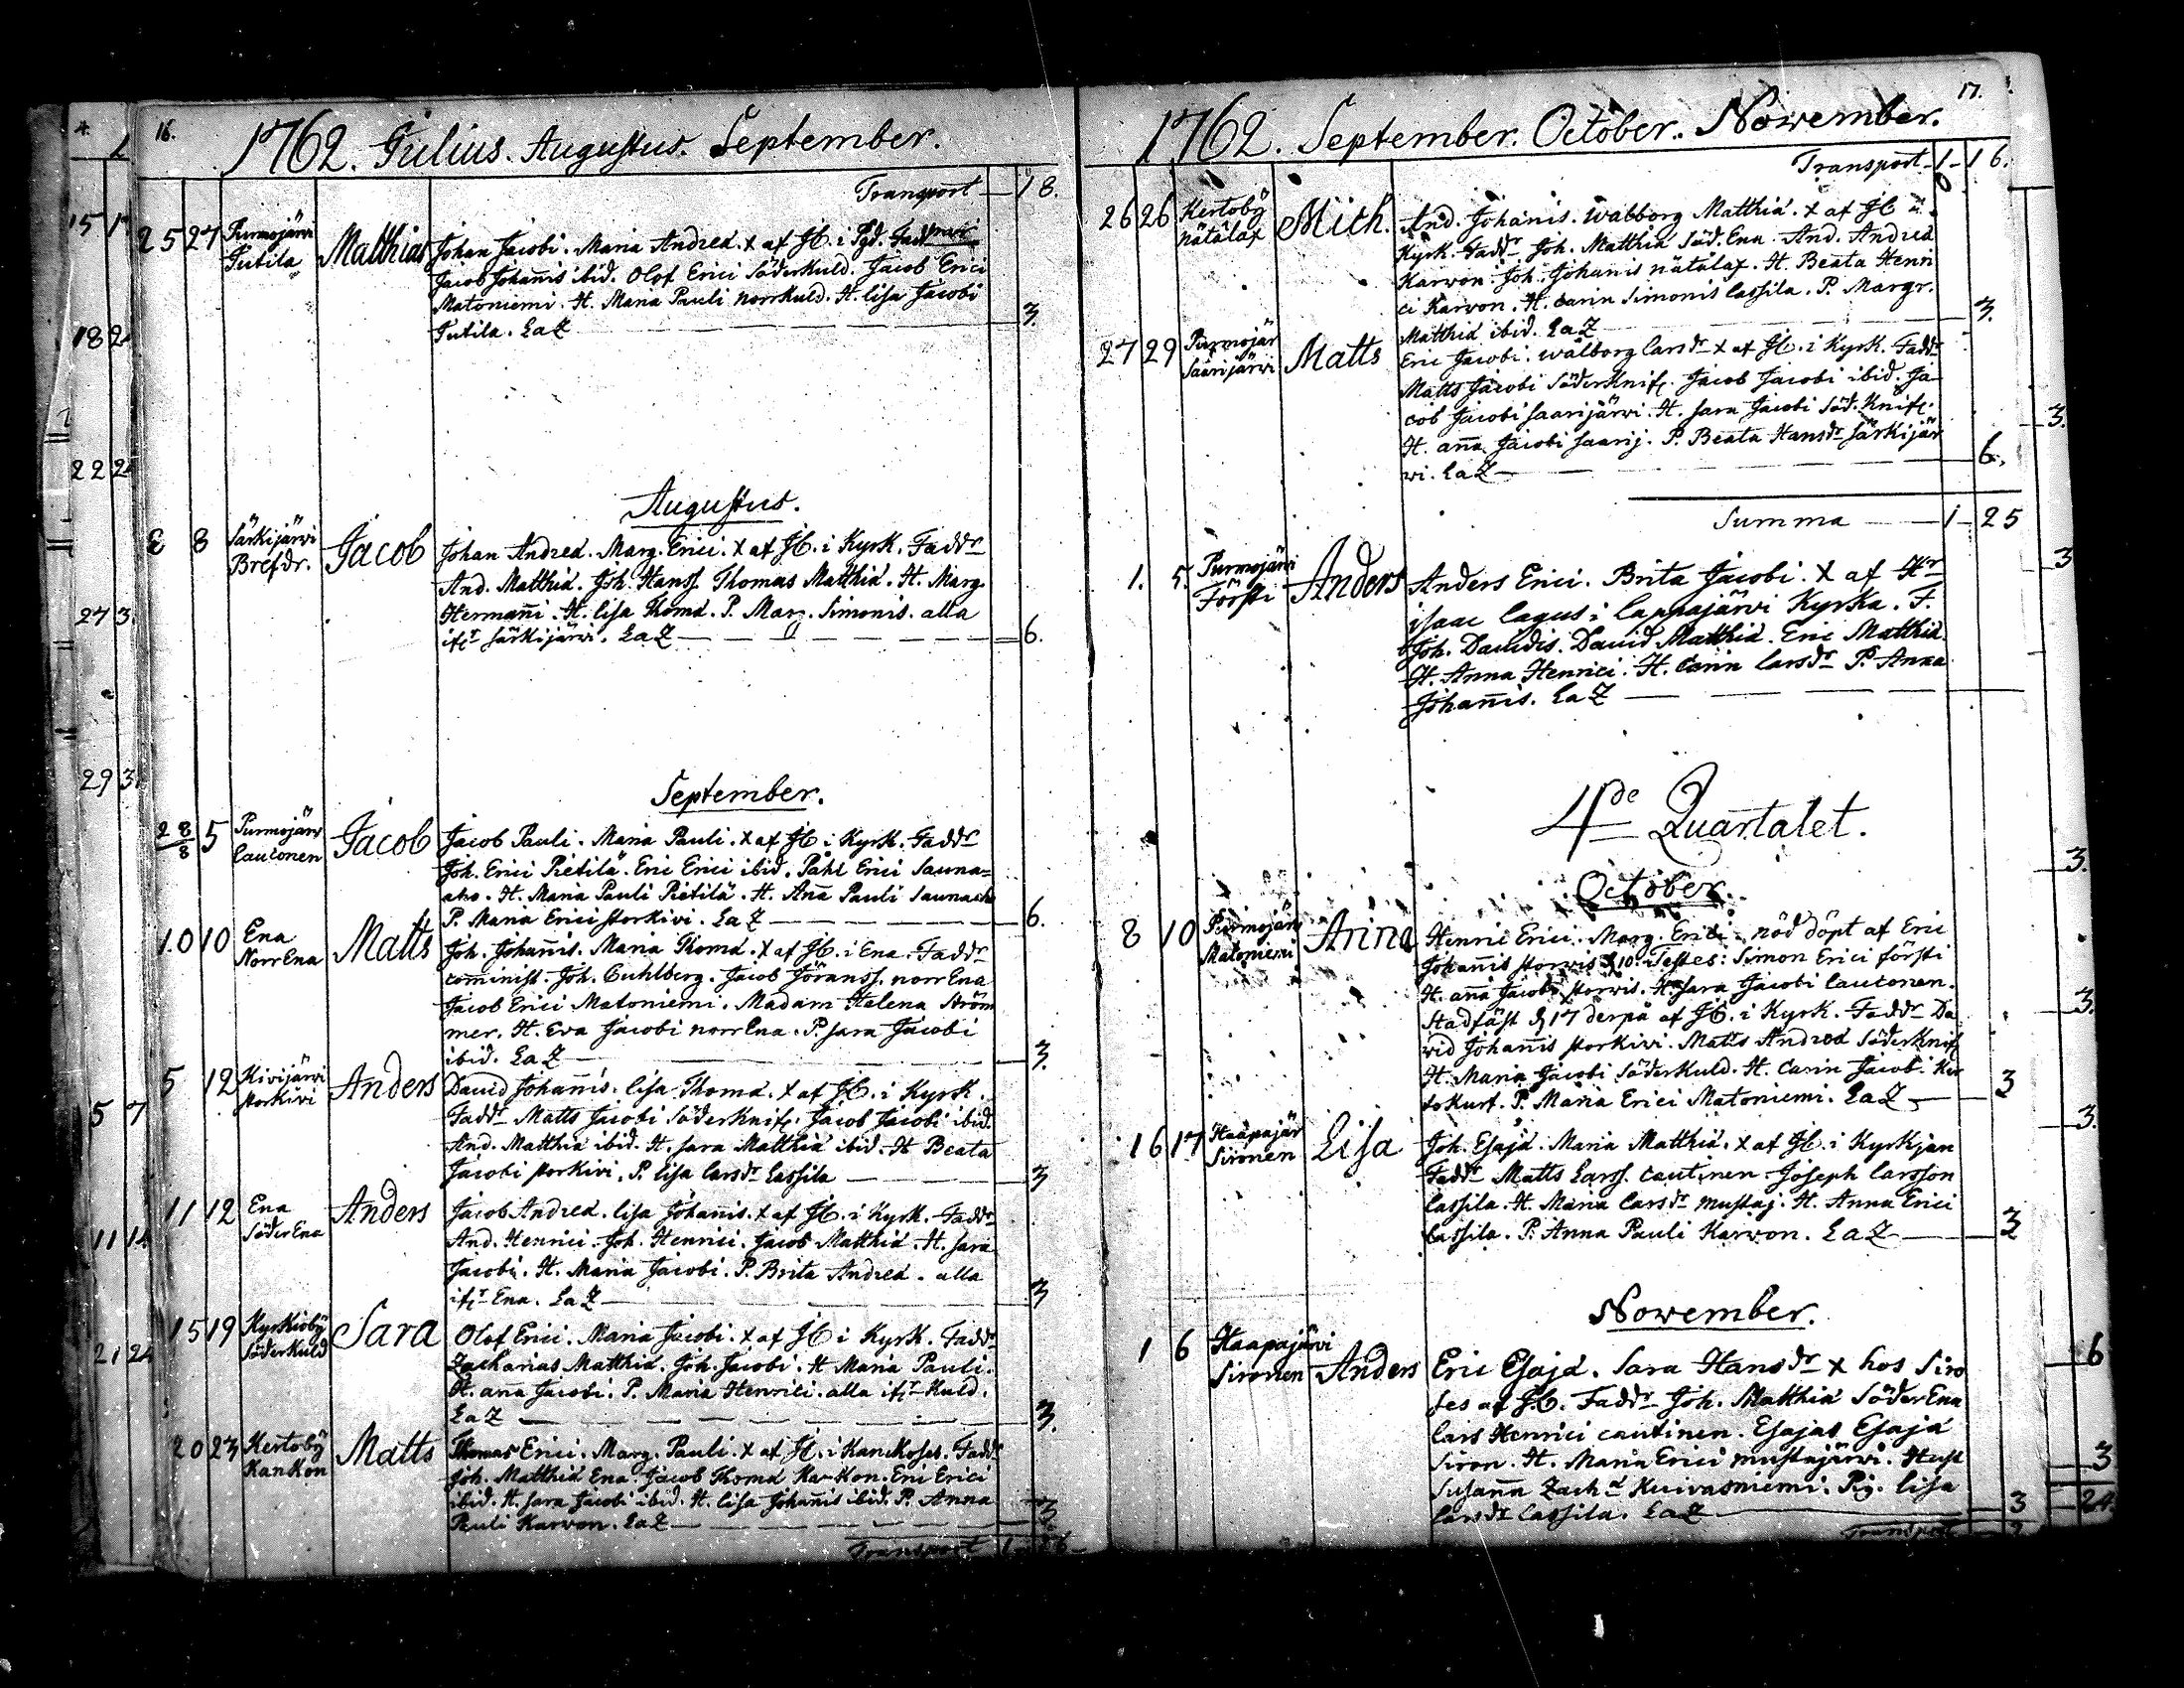 16.
1762. Julius. Augustus. September.
Transport — 18.
25 27 Purmojärvi Matthias Johan Jacobi. Maria Andreæ. x af JC. i Pgd. Fadd
Jutila Jacob Johan̄is ibid. Olof Erici Söderkuld. Jacob Erici
Matoniemi. H. Maria Pauli Norrkuld. H. Lisa Jacobi
Jutila. EaZ — 3.
Augustus.
8 8 Särkijärvi Jacob Johan Andreæ. Marg. Erici. x af JC. i Kyrk. Faddr
Brefdr. And. Matthiæ. Joh. Hanss. Thomas Matthiæ. H. Marg.
Herman̄i. H. Lisa Thomæ. P. Marg. Simonis. alla
ifr Särkijärvi. EaZ — 6.
September.
28/8 5 Purmojärv Jacob Jacob Pauli. Maria Pauli. x af JC i Kyrk. Faddr
Cautonen Joh. Erici Pietilä. Eric Erici ibid. Påhl Erici Sauna=
aho. H. Maria Pauli Pietilä. H. An̄a Pauli Saunaaho
P. Maria Erici Storkivi. EaZ — 6.
10 10 Ena Matts Joh. Johan̄is. Maria Thomæ. x af JC. i Ena. Faddr
Norr Ena com̄inist. Joh. Cuhlberg. Jacob Jöranss. norr Ena
Jacob Erici Matoniemi. Madam Helena Ström
mer. H. Eva Jacobi norr Ena. P. Sara Jacobi
ibid. EaZ — 3.
5 12 Kivijärvi Anders David Johan̄is. Lisa Thomæ. x af JC. i Kyrk.
Storkivi Faddr Matts Jacobi Söderknif. Jacob Jacobi ibid.
And. Matthiæ ibid. H. Sara Matthiæ ibid. H Beata
Jacobi Storkivi. P. Lisa Larsdr Lassila — 3
11 12 Ena Anders Jacob Andreæ. Lisa Johan̄is. x af JC. i Kyrk. Faddr
Söder Ena And. Henrici. Joh. Henrici. Jacob Matthiæ. H. Sara
Jacobi. H. Maria Jacobi. P. Brita Andreæ. alla
ifr Ena. EaZ — 3
15 19 Kyrkioby Sara Olof Erici. Maria Jacobi. x af JC i Kyrk. Faddr
Söderkuld Zacharias Matthiæ. Joh. Jacobi. H Maria Pauli.
H. an̄a Jacobi. P. Maria Henrici. alla ifr Kuld.
EaZ — 3.
20 23 Kertoby Matts Thomas Erici. Marg. Pauli. x af JC. i Kanckoses. Faddr
Kankon Joh. Matthiæ Ena. Jacob Thomæ Kankon. Eric Erici
ibid. H. Sara Jacobi ibid. H. Lisa Johan̄is ibid. P. Anna
Pauli Karvon. EaZ — 3.
Transport 1 — 16 —
17.
1762. September. October. November.
Transport — 1 — 16.
26 26 Kertoby Mich. And. Johanis. Walborg Matthiæ. x af JC i
Nätälax Kyrk. Faddr Joh. Matthiæ Söd. Ena. And. Andreæ
Karvon. Joh. Johanis Nätälax. H. Beata Henri
ci Karvon. H. Carin Simonis Lassila. P. Margr.
Matthiæ ibid. EaZ — 3.
27 29 Purmojär Matts Eric Jacobi. Walborg Larsdr x af JC. i Kyrk. Faddr
Saarijärvi Matts Jacobi Söderknif. Jacob Jacobi ibid. Ja
cob Jacobi Saarijärvi. H. Sara Jacobi Söd. Knif.
H. an̄a Jacobi Saarij. P. Beata Hansdr Särkijär
vi. EaZ — 6.
Summa — 1 — 25
1. 5. Purmojärvi Anders Anders Erici. Brita Jacobi. x af Hr
Försti Isaac Lagus i Lappajärvi Kyrka. F.
Joh. Davidis. David Matthiæ. Eric Matthiæ.
H. Anna Henrici. H. Carin Larsdr P. Anna
Johan̄is. EaZ —
4de Quartalet.
October.
8 10 Purmojärv Anna Henric Erici. Marg. Erici. nöd döpt af Eric
Matoniemi Johan̄is Storvis d 10. Testes: Simon Erici Försti
H. an̄a Jacobi Storvis. H. Sara Jacobi Cautonen.
Stadfäst d 17 derpå af JC. i Kyrk. Faddr Da
vid Johan̄is Storkivi. Matts Andreæ Söderknif
H. Maria Jacobi Söderkuld. H. Carin Jacob. Ker
tokurt. P. Maria Erici Matoniemi. EaZ — 3
16 17 Haapajär Lisa Joh. Esajæ. Maria Matthiæ. x af JC. i Kyrkjan
Sironen Faddr Matts Larss. Cautinen. Joseph Larsson
Lassila. H. Maria Larsdr Mustaj. H. Anna Erici
Lassila. P. Anna Pauli Karvon. EaZ — 3
November.
1 6 Haapajärvi Anders Eric Esajæ. Sara Hansdr x hos Siro
Sironen ses af JC. Faddr Joh. Matthiæ Söder Ena
Lars Henrici Cautinen. Esajas Esajæ
Siron. H. Maria Erici Mustajärvi. Hust
Susan̄a Zachæ Kuivasniemi. Pig. Lisa
Larsdr Lassila. EaZ — 3
Transport